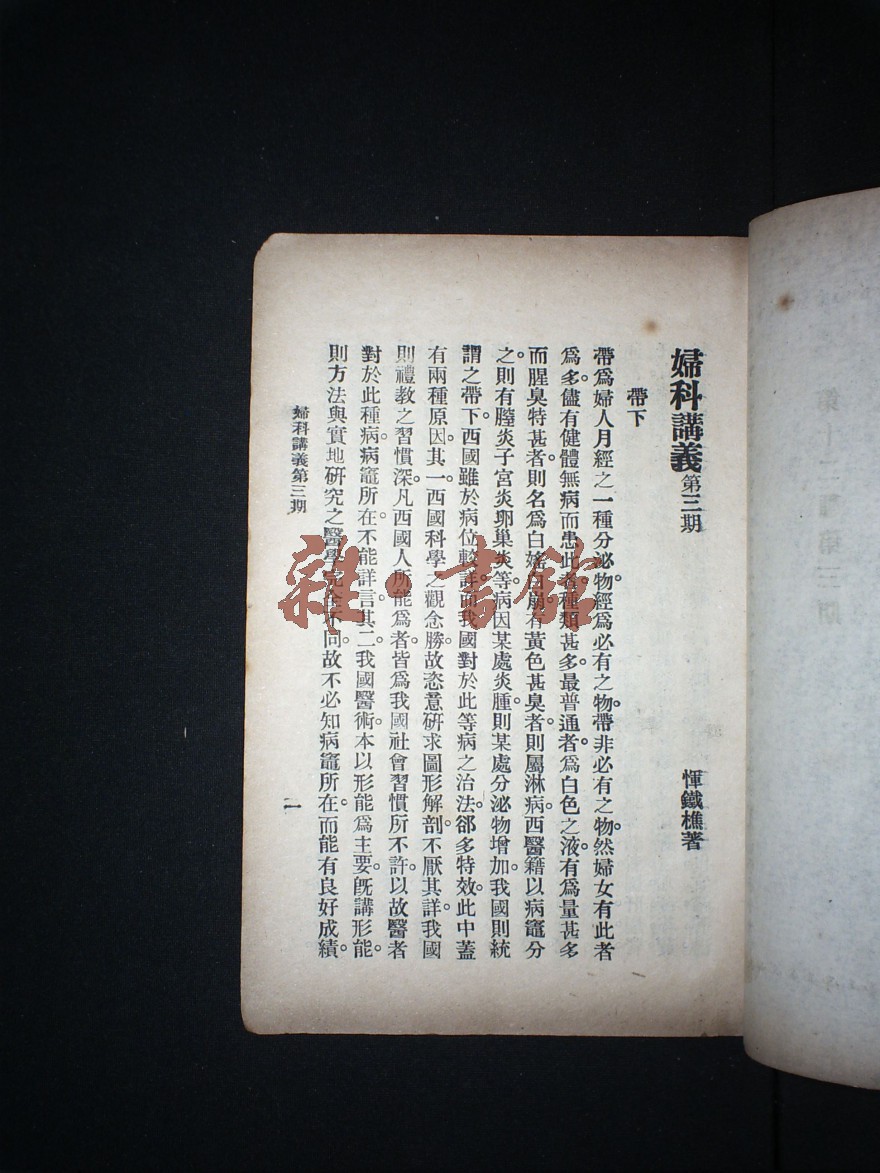 婦科講義第三期
惲鐵樵著
帶下
帶爲婦人月經之一種分泌物。經爲必有之物。帶非必有之物。然婦女有此者
爲多。儘有健體無病而患此者。種類甚多。最普通者。爲白色之液。有爲量甚多
而腥臭特甚者。則名爲白婬白崩。有黃色甚臭者。則屬淋病。西醫籍以病竈分
之。則有膣炎子宮炎卵巢炎等病。因某處炎腫。則某處分泌物增加。我國則統
謂之帶下。西國雖於病位較詳。而我國對於此等病之治法。郤多特效。此中蓋
有兩種原因。其一西國科學之觀念勝。故恣意研求圖形解剖。不厭其詳。我國
則禮教之習慣深。凡西國人所能爲者。皆爲我國社會習慣所不許。以故醫者
對於此種病。病竈所在。不能詳言。其二我國醫術。本以形能爲主要。旣講形能。
則方法與實地硏究之醫學完全不同。故不必知病竈所在。而能有良好成績。
婦科講義第三期
一
雜·書館